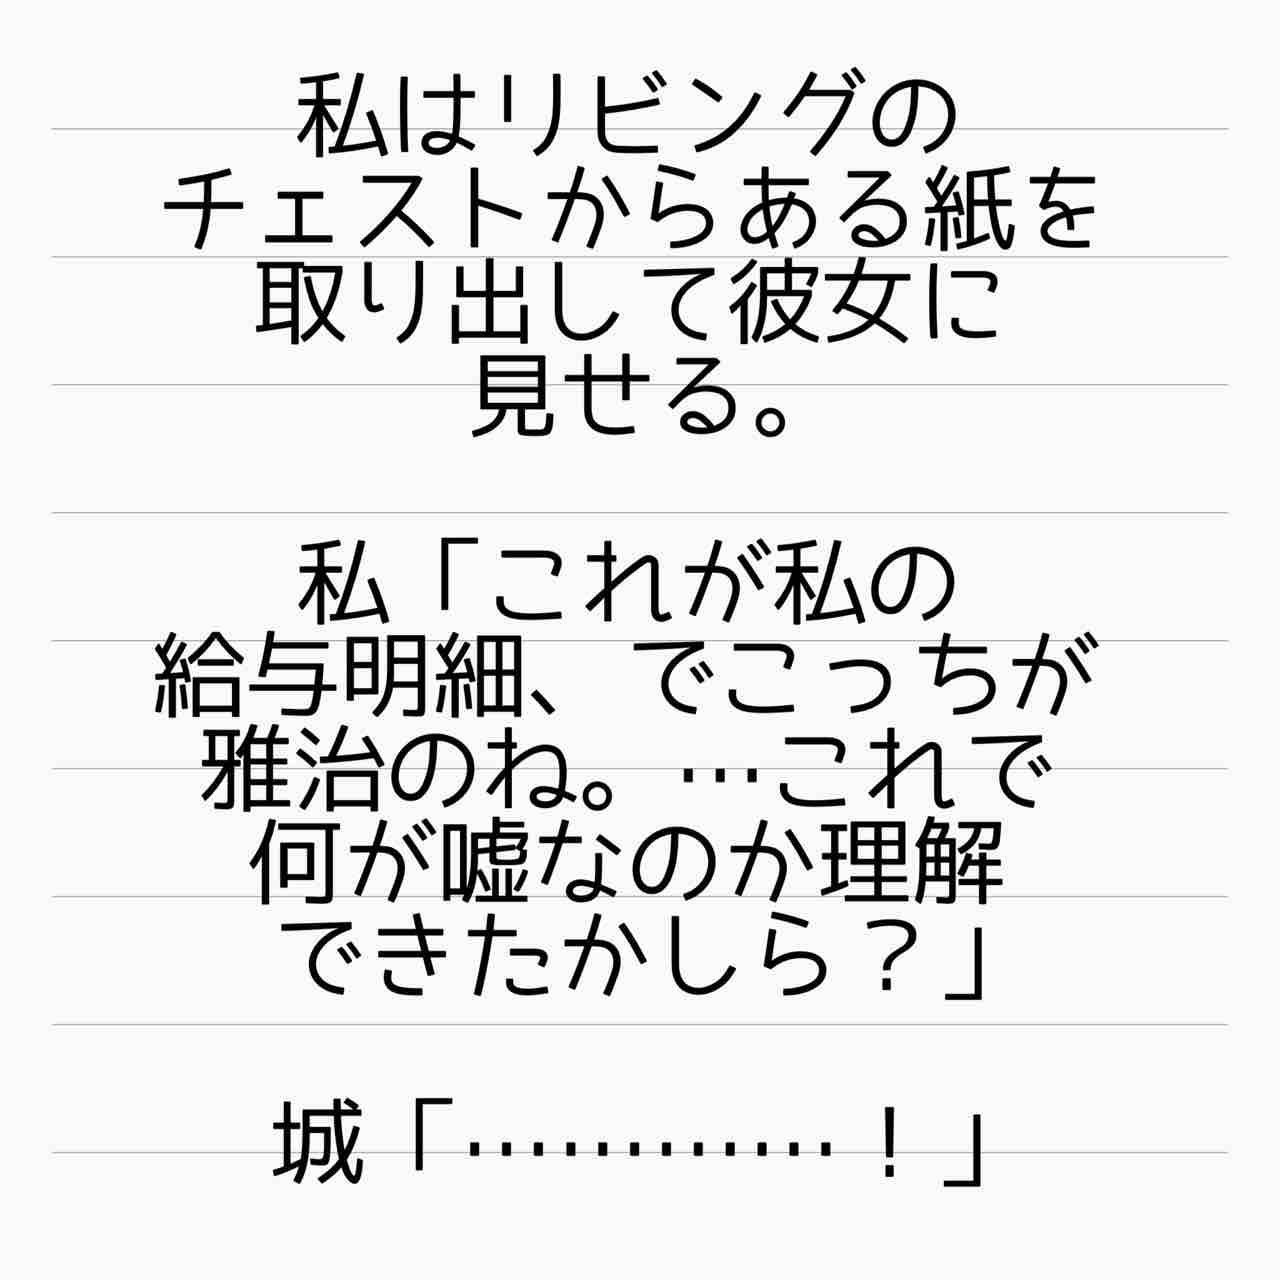 私はリビングの
チェストからある紙を
取り出して彼女に
見せる。
私「これが私の
給与明細、でこっちが
雅治のね。…これで
何が嘘なのか理解
できたかしら？」
城「…………！」